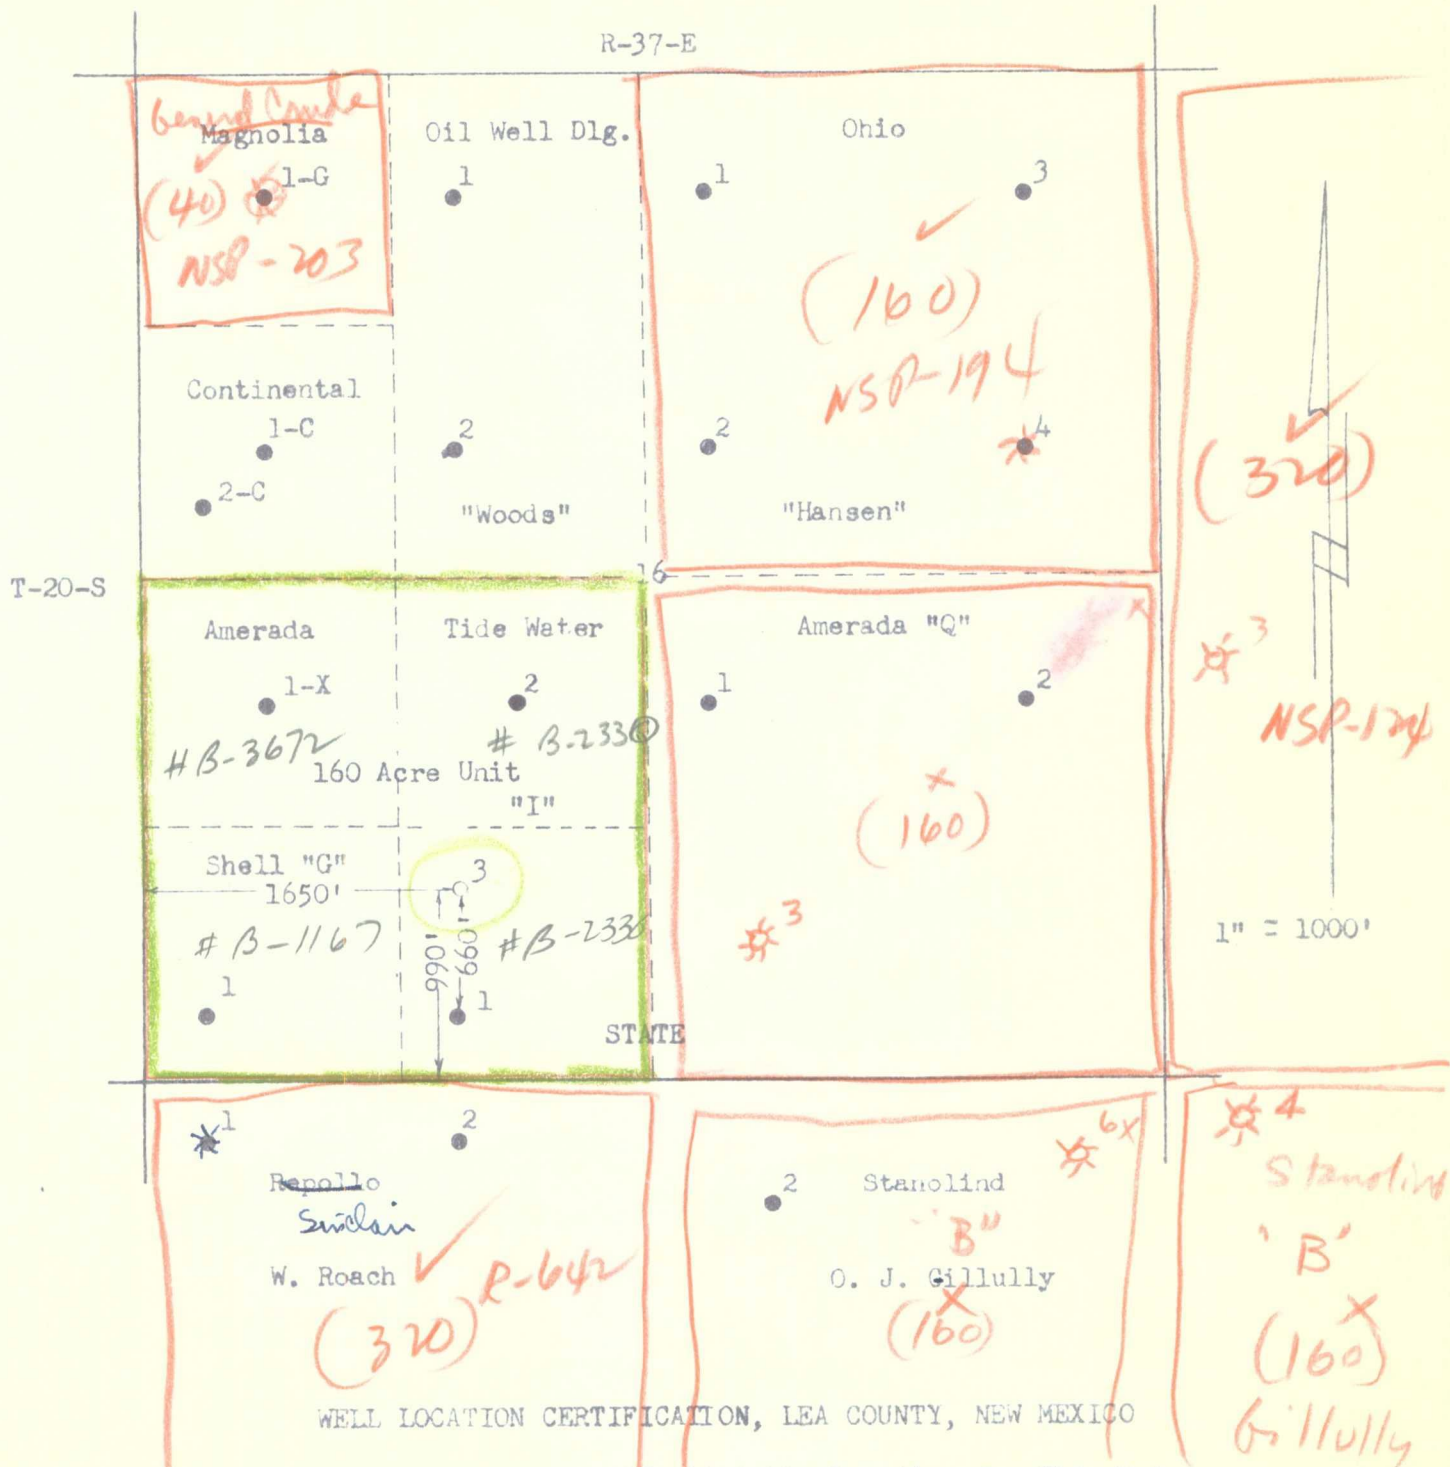 R-37-E
Magnolia
1-G
(40)
NSP-203
Oil Well Dlg.
1
Ohio
1
3
(160)
NSP-194
Continental
1-C
2-C
2
"Woods"
2
4
"Hansen"
(320)
3
NSP-124
T-20-S
16
Amerada
1-X
#B-3672
Tide Water
2
# B-2330
160 Acre Unit
"I"
Amerada "Q"
1
2
x
x
(160)
3
Shell "G"
1650'
3
# B-1167
990'
660'
#B-2330
1
1
STATE
1" = 1000'
1
2
Repollo
Sinclair
W. Roach
R-642
(320)
2
Stanolind
6x
"B"
O. J. Gillully
x
(160)
4
Stanolind
'B'
x
(160)
Gillully
WELL LOCATION CERTIFICATION, LEA COUNTY, NEW MEXICO